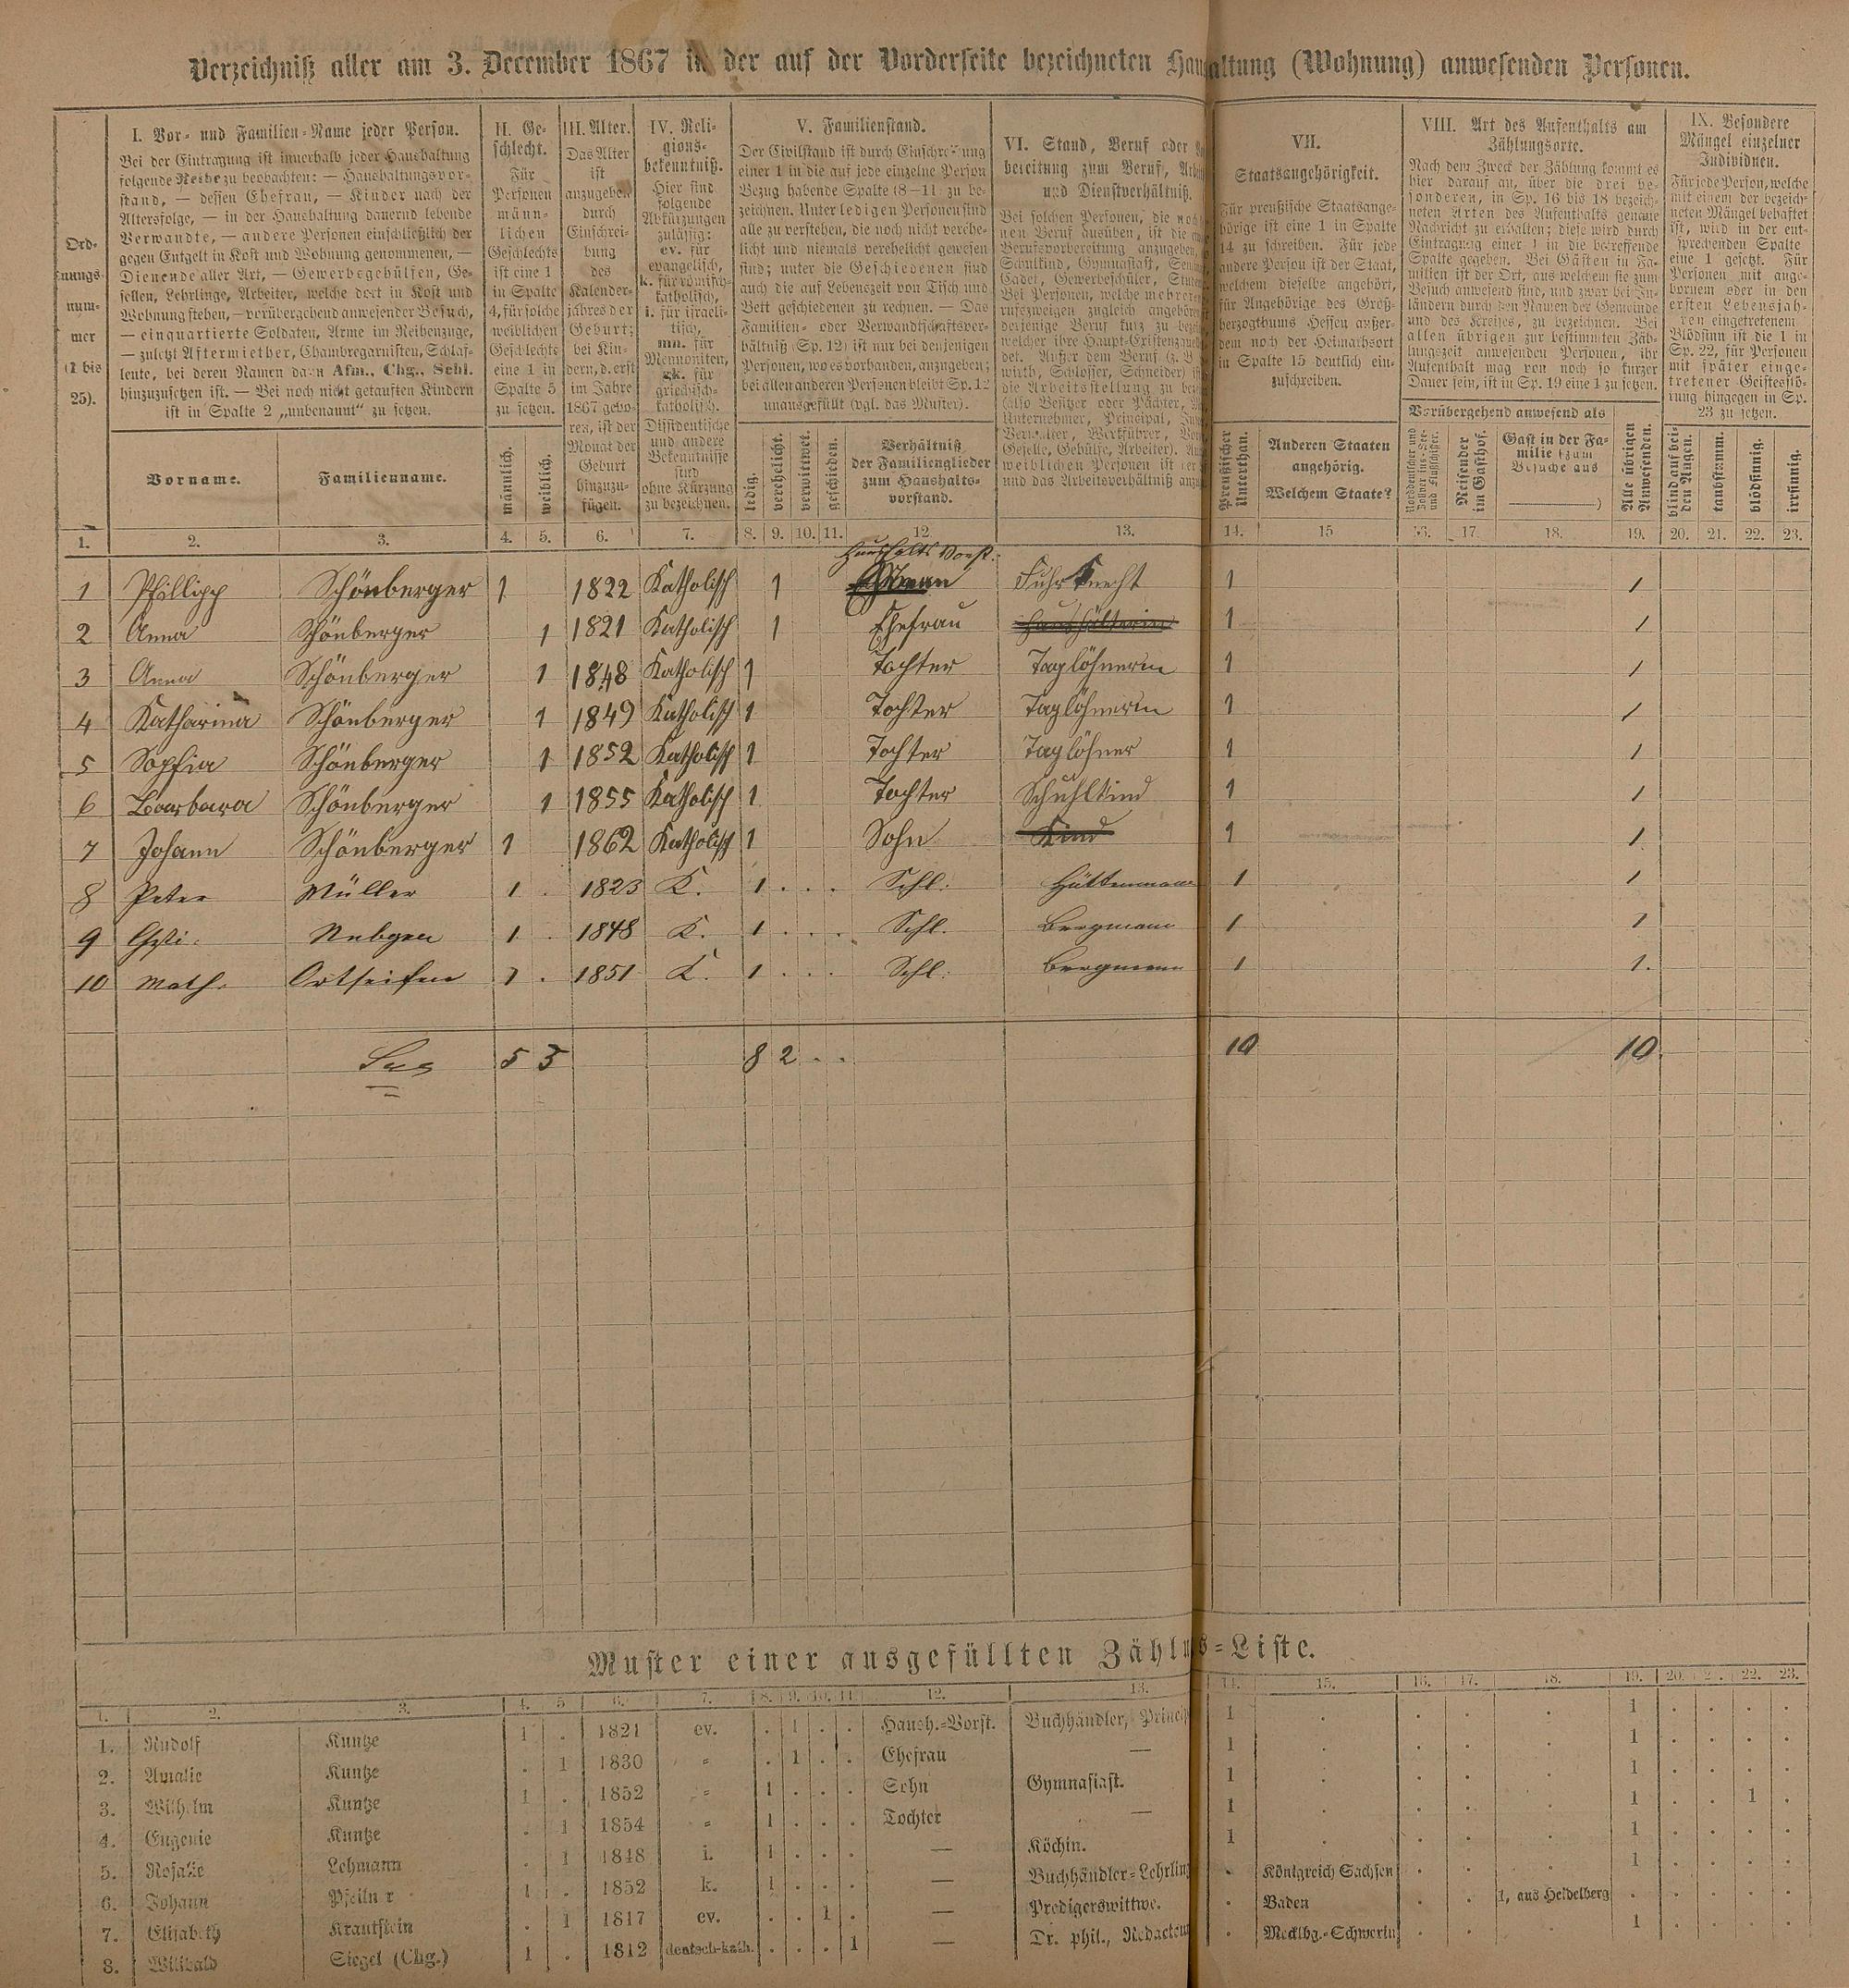 Verzeichniß aller am 3. December 1867 in der auf der Vorderseite bezeichneten Haushaltung (Wohnung) anwesenden Personen.
Ord-
nungs-
num-
mer
(1 bis
25).
I. Vor- und Familien-Name jeder Person.
Bei der Eintragung ist innerhalb jeder Haushaltung
folgende Reihe zu beobachten: — Haushaltungsvor-
stand, — dessen Ehefrau, — Kinder nach der
Altersfolge, — in der Haushaltung dauernd lebende
Verwandte, — andere Personen einschließlich der
gegen Entgelt in Kost und Wohnung genommenen, —
Dienende aller Art, — Gewerbegehülfen, Ge-
sellen, Lehrlinge, Arbeiter, welche dort in Kost und
Wohnung stehen, — vorübergehend anwesender Besuch,
— einquartierte Soldaten, Arme im Reihenzuge,
— zuletzt Aftermiether, Chambregarnisten, Schlaf-
leute, bei deren Namen dann Afm., Chg., Schl.
hinzuzusetzen ist. — Bei noch nicht getauften Kindern
ist in Spalte 2 „unbenannt" zu setzen.
Vorname.
Familienname.
II. Ge-
schlecht.
Für
Personen
männ-
lichen
Geschlechts
ist eine 1
in Spalte
4, für solche
weiblichen
Geschlechts
eine 1 in
Spalte 5
zu setzen.
männlich.
weiblich.
III. Alter.
Das Alter
ist
anzugeben
durch
Einschrei-
bung
des
Kalender-
jahres der
Geburt;
bei Kin-
dern, d. erst
im Jahre
1867 gebo-
ren, ist der
Monat der
Geburt
hinzuzu-
fügen.
IV. Reli-
gions-
bekenntniß.
Hier sind
folgende
Abkürzungen
zulässig:
ev. für
evangelisch,
k. für römisch-
katholisch,
i. für israeli-
tisch,
mn. für
Mennoniten,
gk. für
griechisch-
katholisch.
Dissidentische
und andere
Bekenntnisse
sind
ohne Kürzung
zu bezeichnen.
V. Familienstand.
Der Civilstand ist durch Einschreibung
einer 1 in die auf jede einzelne Person
Bezug habende Spalte (8—11) zu be-
zeichnen. Unter ledigen Personen sind
alle zu verstehen, die noch nicht verehe-
licht und niemals verehelicht gewesen
sind; unter die Geschiedenen sind
auch die auf Lebenszeit von Tisch und
Bett geschiedenen zu rechnen. — Das
Familien- oder Verwandtschaftsver-
hältniß (Sp. 12) ist nur bei denjenigen
Personen, wo es vorhanden, anzugeben;
bei allen anderen Personen bleibt Sp. 12
unausgefüllt (vgl. das Muster).
ledig.
verehelicht.
verwittwet.
geschieden.
Verhältniß
der Familienglieder
zum Haushalts-
vorstand.
VI. Stand, Beruf oder
bereitung zum Beruf,
und Dienstverhältniß.
Bei solchen Personen, die
nen Beruf ausüben, ist die
Berufsvorbereitung anzugeben,
Schulkind, Gymnasiast,
Cadet, Gewerbeschüler,
Bei Personen, welche mehreren
rufszweigen zugleich angehören
derjenige Beruf kurz zu
welcher ihre Haupt-Existenz
det. Außer dem Beruf (z. B.
wirth, Schlosser, Schneider)
die Arbeitsstellung zu
(also Besitzer oder Pächter,
Unternehmer, Principal,
Verwalter, Werkführer,
Geselle, Gehülfe, Arbeiter).
weiblichen Personen ist
und das Arbeitsverhältniß
VII.
Staatsangehörigkeit.
Für preußische Staatsange-
hörige ist eine 1 in Spalte
14 zu schreiben. Für jede
andere Person ist der Staat,
welchem dieselbe angehört,
für Angehörige des Groß-
herzogthums Hessen außer-
dem noch der Heimathsort
in Spalte 15 deutlich ein-
zuschreiben.
Preußischer Unterthan.
Anderen Staaten
angehörig.
Welchem Staate?
VIII. Art des Aufenthalts am
Zählungsorte.
Nach dem Zweck der Zählung kommt es
hier darauf an, über die drei be-
sonderen, in Sp. 16 bis 18 bezeich-
neten Arten des Aufenthalts genaue
Nachricht zu erhalten; diese wird durch
Eintragung einer 1 in die betreffende
Spalte gegeben. Bei Gästen in Fa-
milien ist der Ort, aus welchem sie zum
Besuch anwesend sind, und zwar bei In-
ländern durch den Namen der Gemeinde
und des Kreises, zu bezeichnen. Bei
allen übrigen zur bestimmten Zäh-
lungszeit anwesenden Personen, ihr
Aufenthalt mag von noch so kurzer
Dauer sein, ist in Sp. 19 eine 1 zu setzen.
Vorübergehend anwesend als
Norddeutscher und Zollver ins-See- und Flußschiffer.
Reisender im Gasthof.
Gast in der Fa-
milie (zum
Besuche aus
)
Alle übrigen Anwesenden.
IX. Besondere
Mängel einzelner
Individuen.
Für jede Person, welche
mit einem der bezeich-
neten Mängel behaftet
ist, wird in der ent-
sprechenden Spalte
eine 1 gesetzt. Für
Personen mit ange-
bornem oder in den
ersten Lebensjah-
ren eingetretenem
Blödsinn ist die 1 in
Sp. 22, für Personen
mit später einge-
tretener Geistesstö-
rung hingegen in Sp.
23 zu setzen.
blind auf bei-
den Augen.
taubstumm.
blödsinnig.
irrsinnig.
1. 2. 3. 4. 5. 6. 7. 8. 9. 10. 11. 12. 13. 14. 15 16. 17. 18. 19. 20. 21. 22. 23.
Haushalts Vorst.
1 Phillipp Schönberger 1 1822 Katholisch 1 Fuhrknecht 1 1
2 Anna Schönberger 1 1821 Katholisch 1 Ehefrau Haushälterin 1 1
3 Anna Schönberger 1 1848 Katholisch 1 Tochter Taglöhnerin 1 1
4 Katharina Schönberger 1 1849 Katholisch 1 Tochter Taglöhnerin 1 1
5 Sopfia Schönberger 1 1852 Katholisch 1 Tochter Taglöhner 1 1
6 Barbara Schönberger 1 1855 Katholisch 1 Tochter Schuhlkind 1 1
7 Johann Schönberger 1 1862 Katholisch 1 Sohn Kind 1 1
8 Peter Müller 1 . 1823 K. 1 . . . Schl. Hüttenmann 1 1
9 1 . 1848 K. 1 . . . Schl. Bergmann 1 1
10 Math. Ortseifen 1 . 1851 K. 1 . . . Schl. Bergmann 1 1.
5 5 8 2 . . 10 10
Muster einer ausgefüllten Zählungs-Liste.
1. 2. 3. 4. 5 6. 7. 8. 9. 10. 11. 12. 13. 14. 15. 16. 17. 18. 19. 20. 21. 22. 23.
1. Rudolf Kuntze 1 . 1821 ev. . 1 . . Haush.-Vorst. Buchhändler, 1 . . . . 1 . . . .
2. Amalie Kuntze . 1 1830 " . 1 . . Ehefrau — 1 . . . . 1 . . . .
3. Wilhelm Kuntze 1 . 1852 " 1 . . . Sohn Gymnasiast. 1 . . . . 1 . . . .
4. Eugenie Kuntze . 1 1854 " 1 . . . Tochter — 1 . . . . 1 . . 1 .
5. Rosalie Lehmann . 1 1848 i. 1 . . . — Köchin. 1 . . . . 1 . . . .
6. Johann 1 . 1852 k. 1 . . . — Buchhändler-Lehrling . Königreich Sachsen . . . 1 . . . .
7. Elisabeth Krautstein . 1 1817 ev. . . 1 . — Predigerswittwe. . Baden . . 1, aus Heidelberg . . . . .
8. Willibald Siegel (Chg.) 1 . 1812 deutsch-kath. . . . 1 — Dr. phil., Redacteur . Mecklbg.-Schwerin . . . 1 . . . .